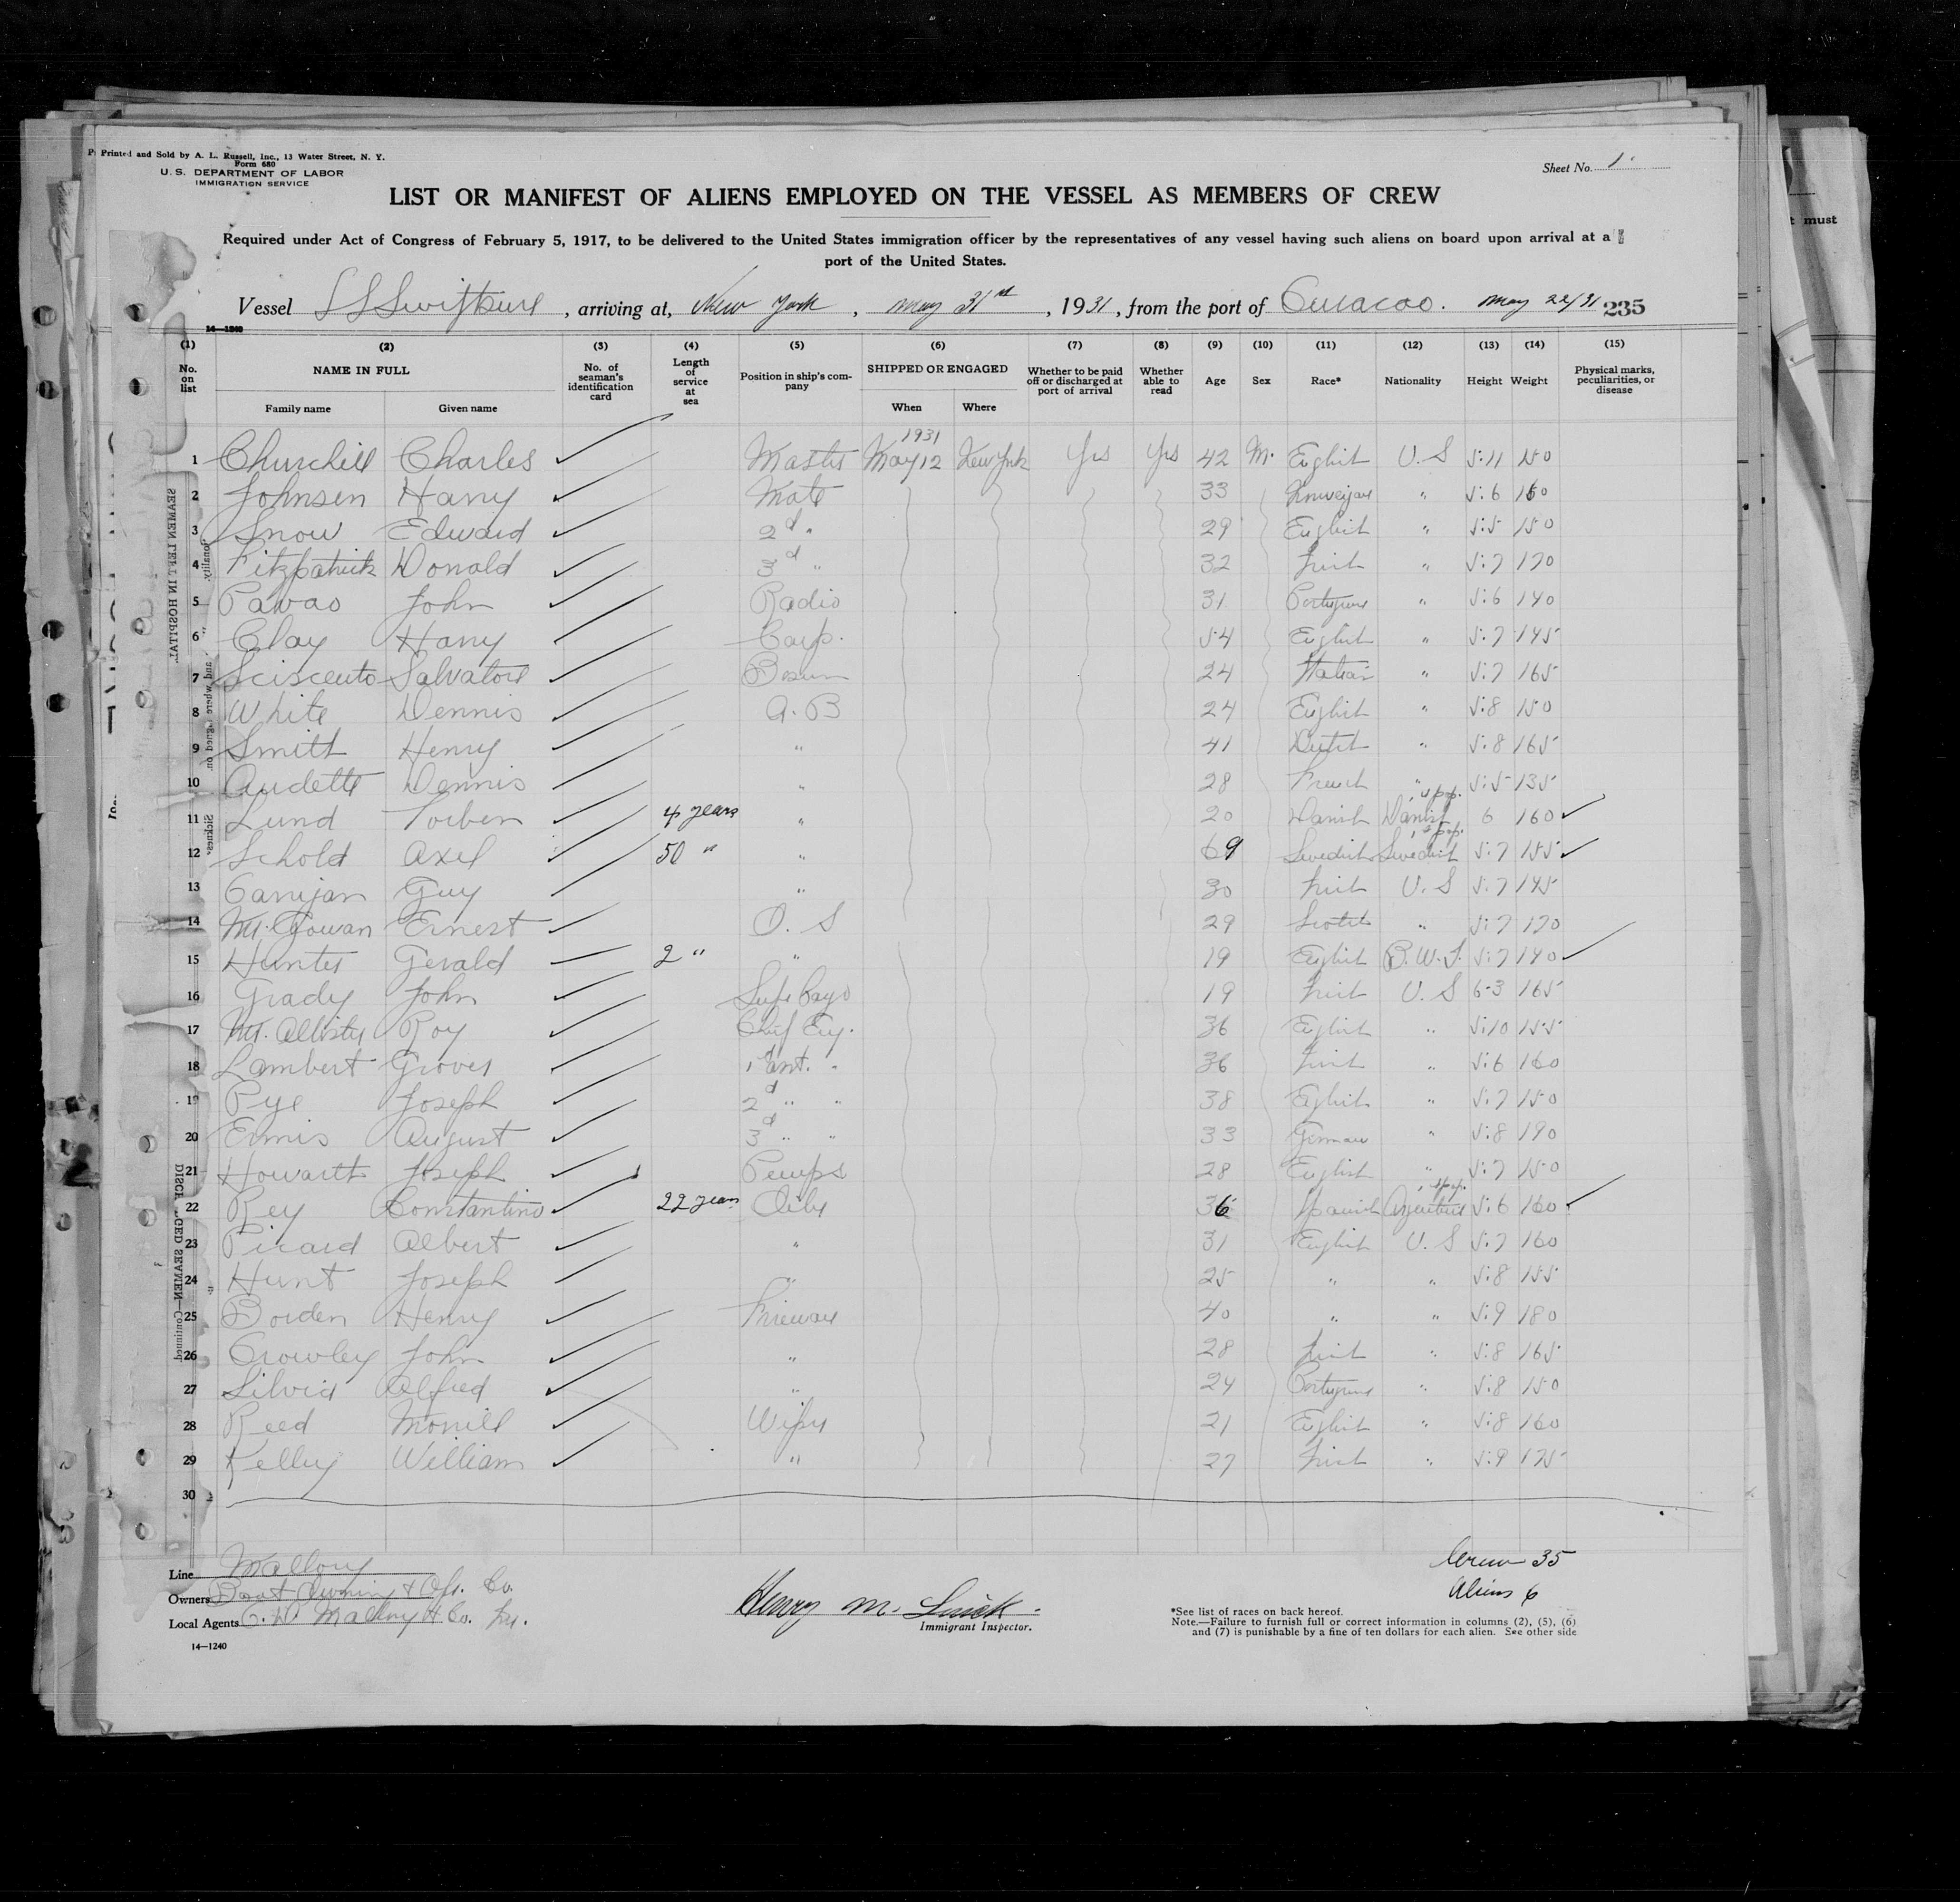 Printed and Sold by A. L. Russell, Inc., 13 Water Street, N. Y.
Form 680
U. S. DEPARTMENT OF LABOR
IMMIGRATION SERVICE
Sheet No. 1
LIST OR MANIFEST OF ALIENS EMPLOYED ON THE VESSEL AS MEMBERS OF CREW
Required under Act of Congress of February 5, 1917, to be delivered to the United States immigration officer by the representatives of any vessel having such aliens on board upon arrival at a
port of the United States.
Vessel SS Swiftsure, arriving at, New York, May 31st, 1931, from the port of Curacao. May 22/31 235
14—1240
(1) (2) (3) (4) (5) (6) (7) (8) (9) (10) (11) (12) (13) (14) (15)
No. on list NAME IN FULL Family name Given name No. of seaman's identification card Length of service at sea Position in ship's company SHIPPED OR ENGAGED When Where Whether to be paid off or discharged at port of arrival Whether able to read Age Sex Race* Nationality Height Weight Physical marks, peculiarities, or disease
1931
1 Churchill Charles Master May 12 New York Yes Yes 42 M. English U. S 5:11 150
2 Johnsen Harry Mate 33 " 5:6 160
3 Snow Edward 2d " 29 English " 5:5 150
4 Fitzpatrick Donald 3d " 32 Irish " 5:7 170
5 Pavao John Radio 31 Portuguese " 5:6 140
6 Clay Harry Carp. 54 English " 5:7 145
7 Sciscento Salvatore Bosun 24 Italian " 5:7 165
8 White Dennis A. B 24 English " 5:8 150
9 Smith Henry " 41 Dutch " 5:8 165
10 Audette Dennis " 28 French " 5:5 135
11 Lund Torben 4 years " 20 Danish Danish 6 160
12 Schold Axel 50 " " 69 Swedish Swedish 5:7 155
13 Ganijan Guy " 30 Irish U. S 5:7 145
14 Mc. Gowan Ernest O. S 29 Scotch " 5:7 170
15 Hunter Gerald 2 " " 19 English B. W. I. 5:7 140
16 Grady John Supe Cargo 19 Irish U. S 6-3 165
17 Mc. Allister Roy Chief Eng. 36 English " 5:10 155
18 Lambert Grover 1 Asst. " 36 Irish " 5:6 160
19 Pye Joseph 2d " " 38 English " 5:7 150
20 Ermis August 3d " " 33 German " 5:8 190
21 Howarth Joseph Pumps 28 English " 5:7 150
22 Rey Constantino 22 years Oiler 36 Spanish Argentine 5:6 160
23 Picard Albert " 31 English U. S 5:7 160
24 Hunt Joseph " 25 " " 5:8 155
25 Borden Henry Fireman 40 " " 5:9 180
26 Crowley John " 28 Irish " 5:8 165
27 Silvia Alfred " 24 Portuguese " 5:8 150
28 Reed Morrill Wiper 21 English " 5:8 160
29 Kelley William " 27 Irish " 5:9 175
30
Crew 35
Aliens 6
Line Mallory
Owners
Local Agents C. D. Mallory & Co. Inc.
14—1240
Henry M.
Immigrant Inspector.
*See list of races on back hereof.
Note.—Failure to furnish full or correct information in columns (2), (5), (6)
and (7) is punishable by a fine of ten dollars for each alien. See other side
SEAMEN LEFT IN HOSPITAL
t must